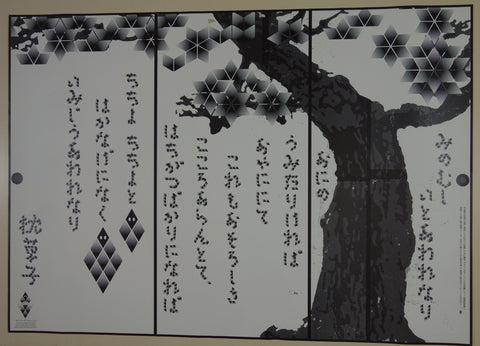 みのむし
いとあわれなり
おにの
うみたりければ
おやににて
これもおそろしき
こころあらんとて、
はちがつばかりになれば
ちちよ ちちよと
はかなげになく
いみじうあわれなり
枕草子